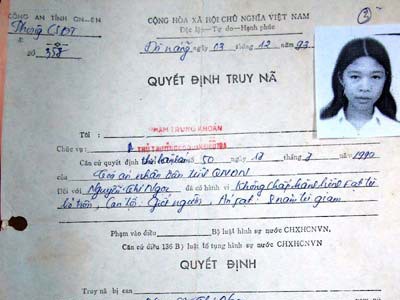 CÔNG AN TỈNH QN-ĐN
Phòng CSĐT
Số 358
③
CỘNG HÒA XÃ HỘI CHỦ NGHĨA VIỆT NAM
Độc lập - Tự do - Hạnh phúc
Đà nẵng ngày 03 tháng 12 năm 1993
QUYẾT ĐỊNH TRUY NÃ
Tôi : PHẠM TRUNG KHOÁN
Chức vụ : THỦ TRƯỞNG
Căn cứ quyết định số 50 ngày 13 tháng 3 năm 1990
của Toà án nhân dân tỉnh QNĐN
Đối với Nguyễn Thị Ngọc đã có hành vi Không chấp hành
bỏ trốn, Can tội: Giết người, Án phạt 8 năm tù giam
Phạm vào điều Bộ luật hình sự nước CHXHCNVN.
Căn cứ điều 136 B) luật tố tụng hình sự nước CHXHCNVN.
QUYẾT ĐỊNH
Truy nã bị can